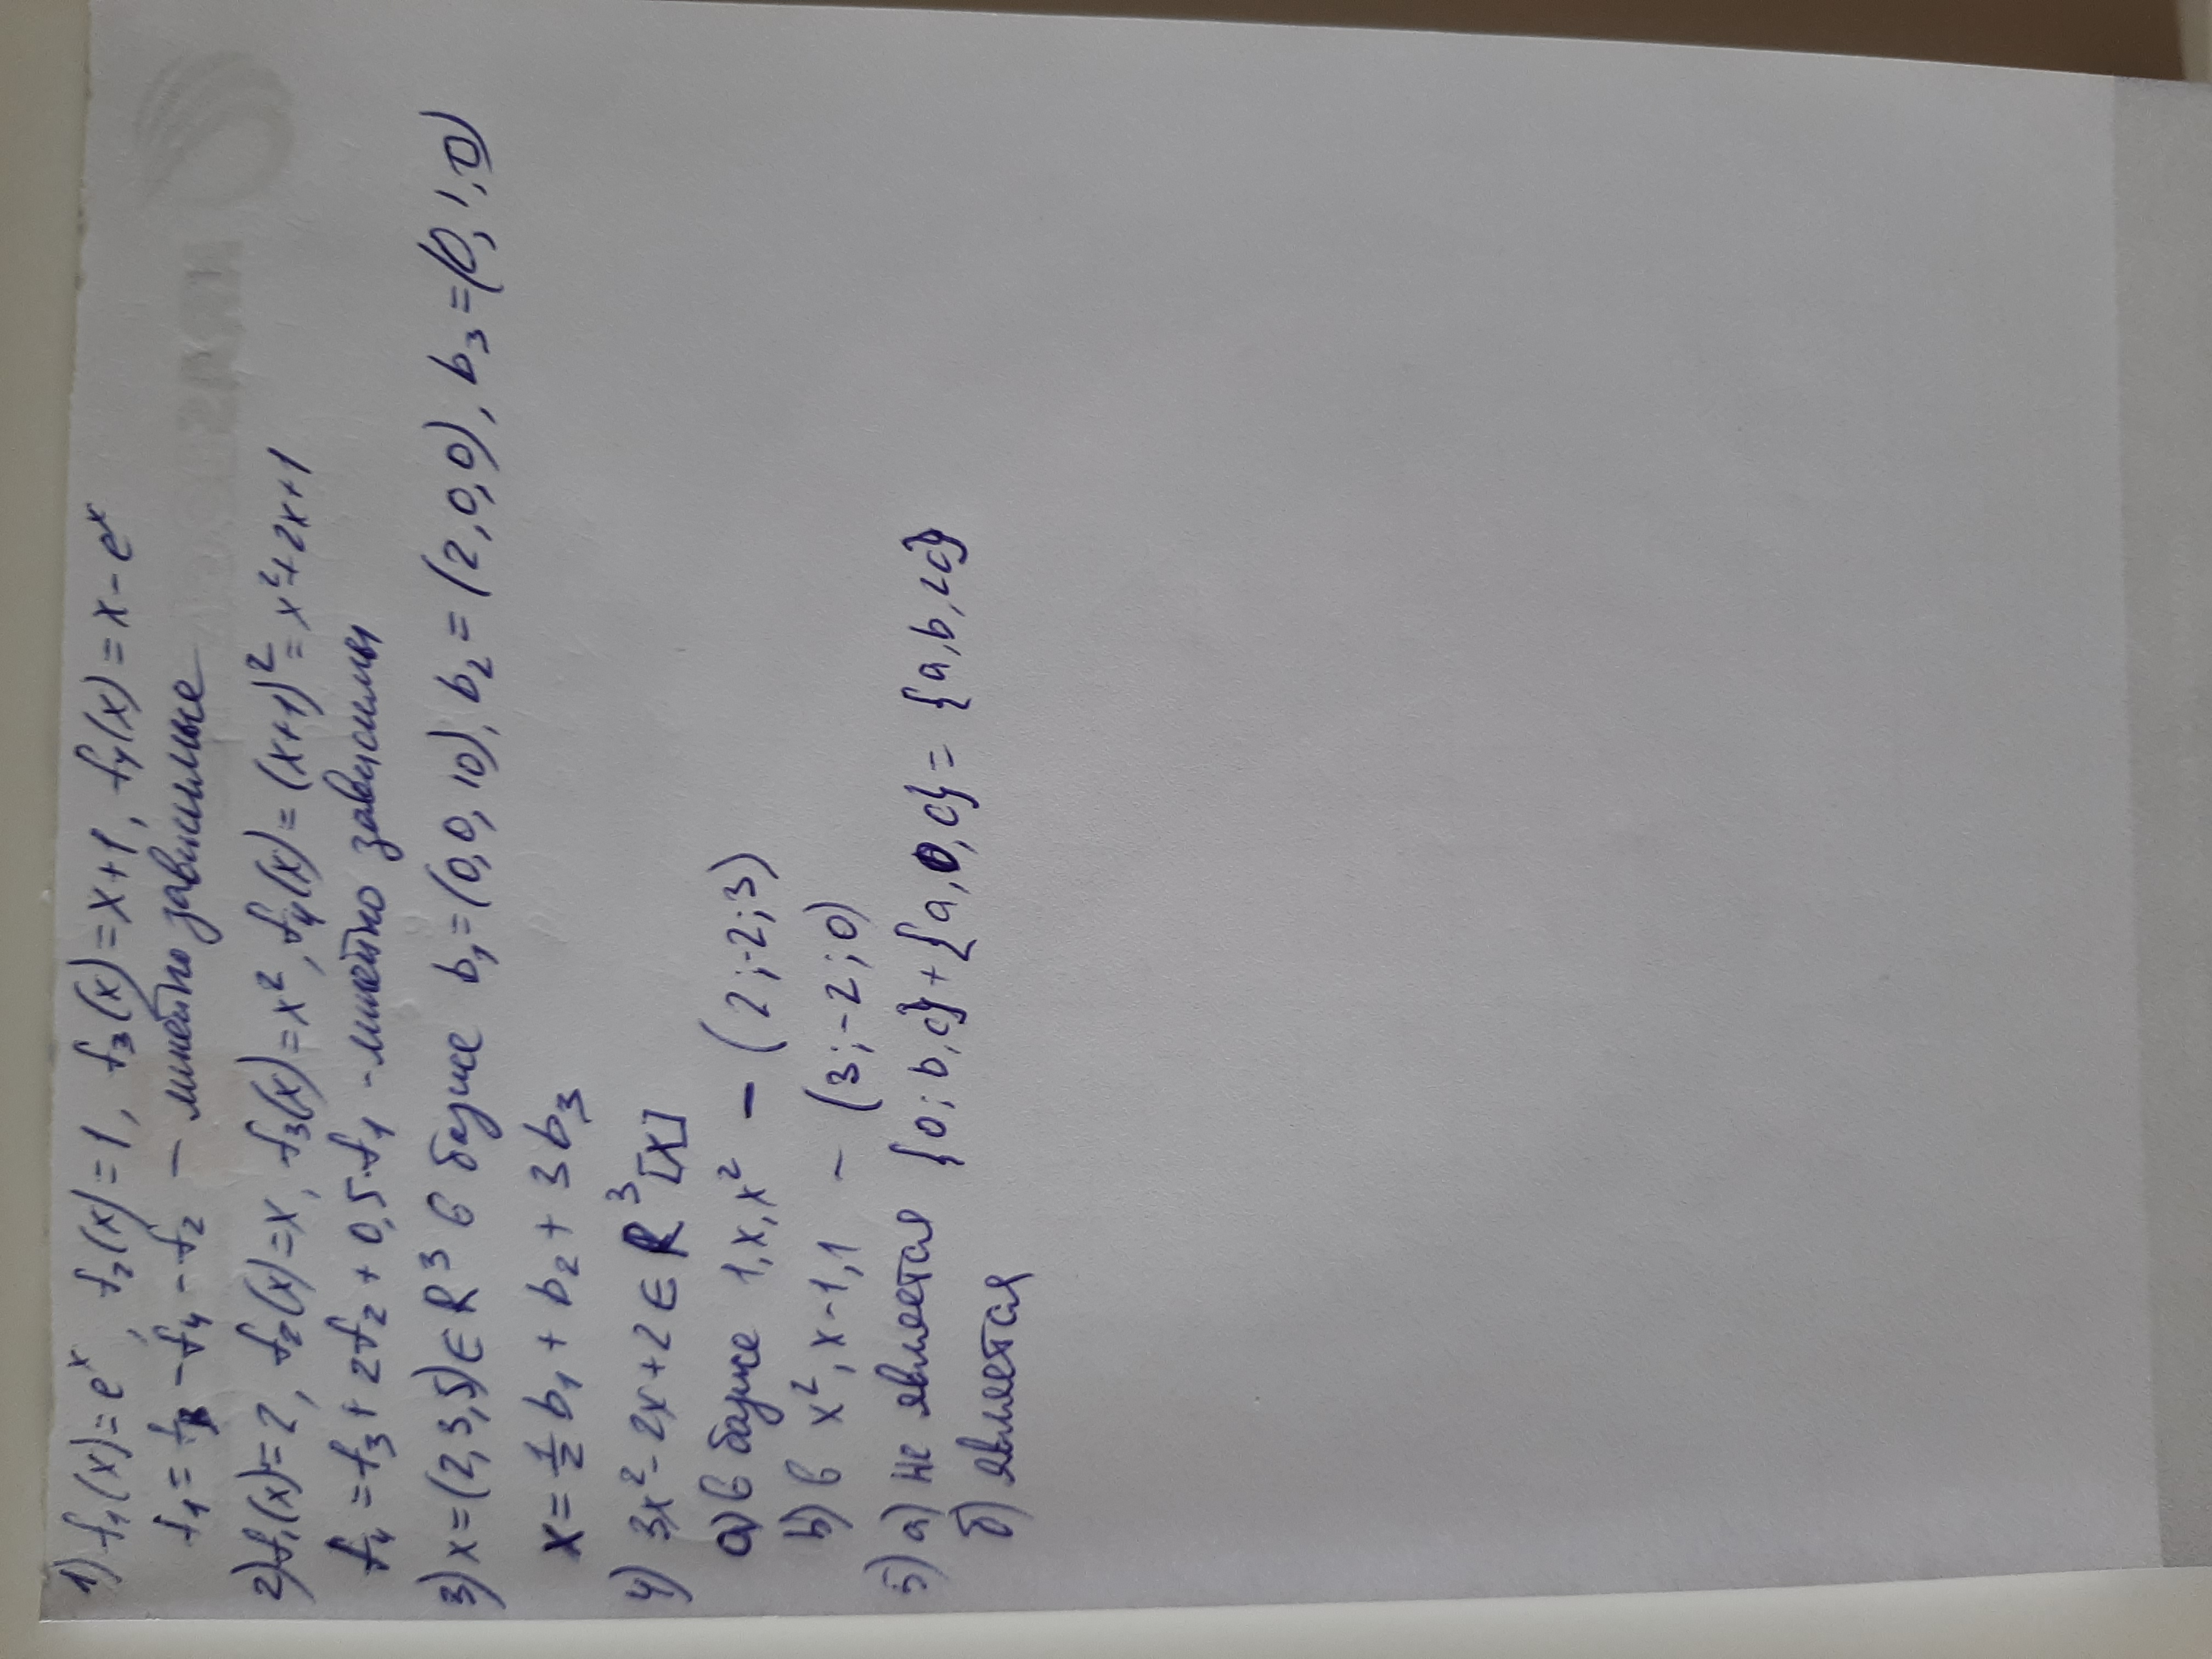 1) f₁(x)=eˣ, f₂(x)=1, f₃(x)=x+1, f₄(x)=x-eˣ
f₁=f₃-f₄-f₂ - линейно зависимые
2) f₁(x)=2, f₂(x)=x, f₃(x)=x², f₄(x)=(x+1)²=x²+2x+1
f₄=f₃+2f₂+0,5·f₁ - линейно зависимы
3) x=(2,3,5)∈R³ в базисе b₁=(0,0,10), b₂=(2,0,0), b₃=(0,1,0)
x=½b₁+b₂+3b₃
4) 3x²-2x+2∈R³[x]
а) в базисе 1,x,x² - (2;-2;3)
b) в x²,x-1,1 - (3;-2;0)
5) а) не является {0;b,c}+{a,0,c}={a,b,2c}
б) является